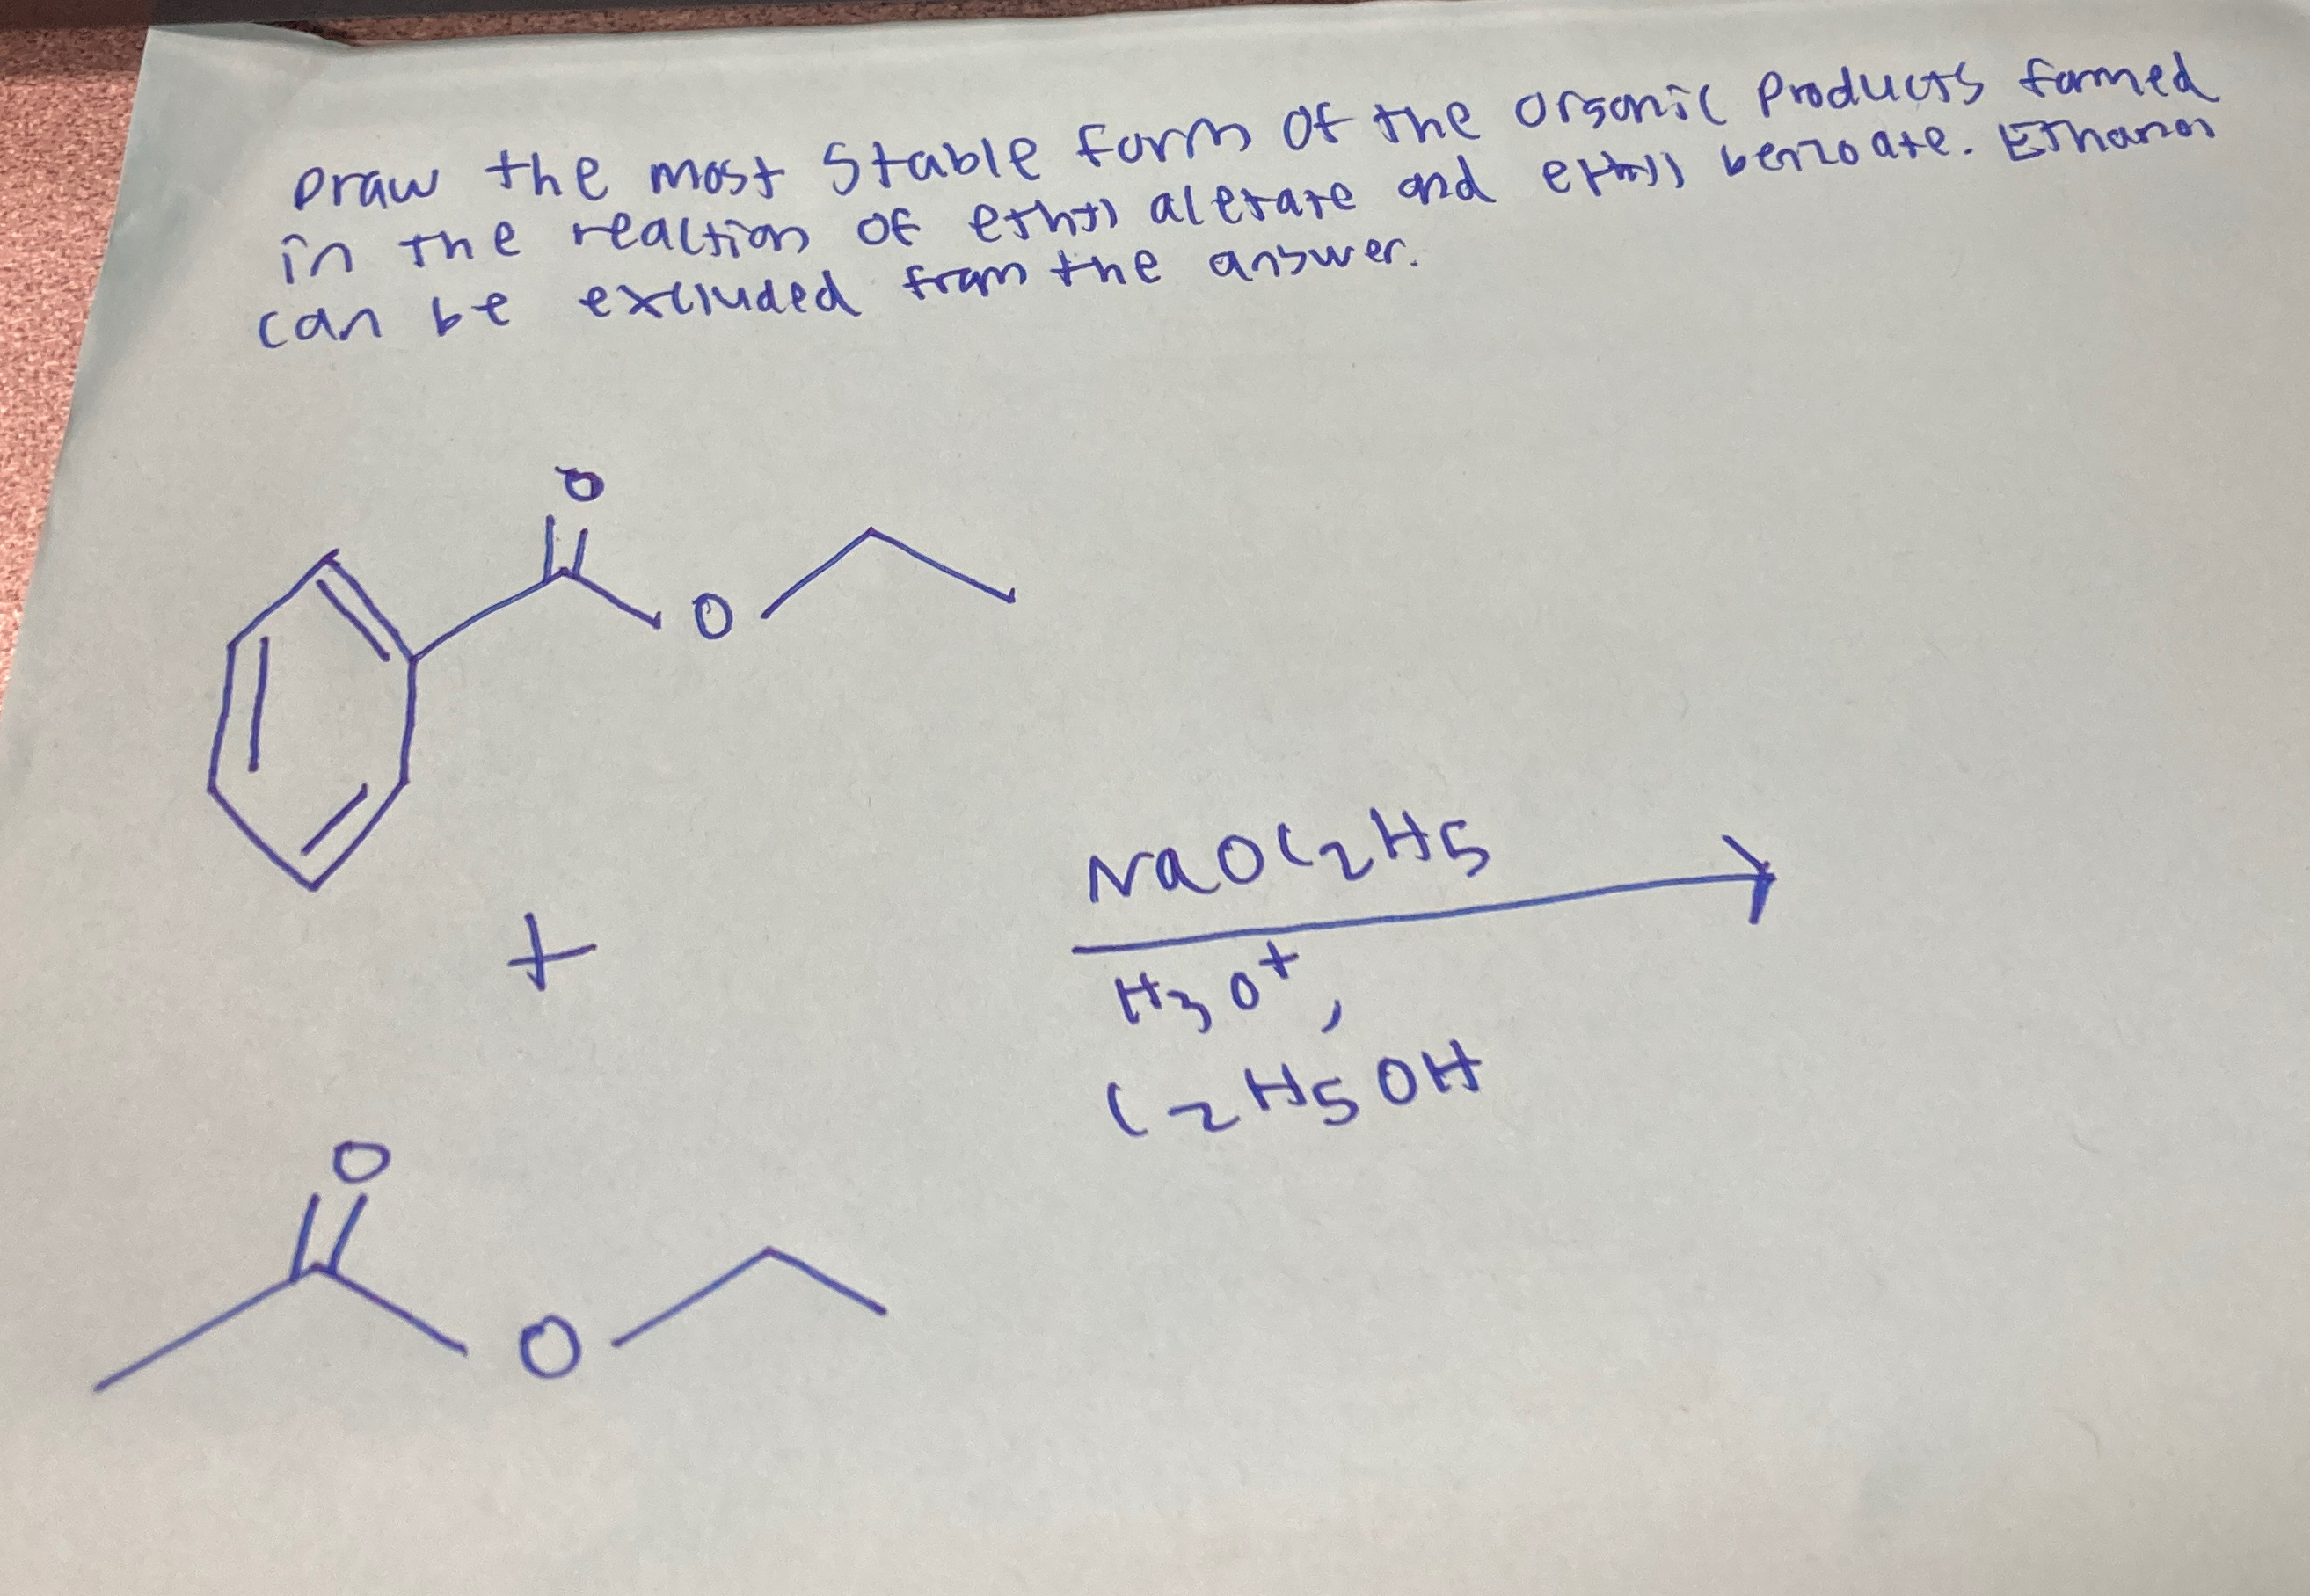 Draw the most stable form of the organic products formed
in the reaction of ethyl acetate and ethyl benzoate. Ethanol
can be excluded from the answer.
O
O
NaOC2H5
+
H3O+,
C2H5OH
O
O